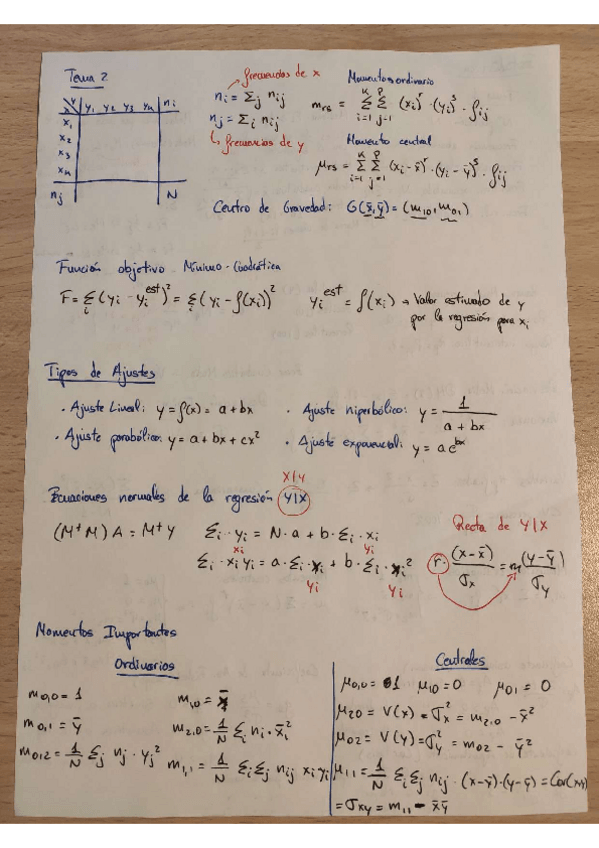 Tema 2
y
x
y₁ y₂ y₃ yₖ nᵢ
x₁
x₂
x₃
xₖ
nⱼ N
frecuencias de x
nᵢ = Σⱼ nᵢⱼ
nⱼ = Σᵢ nᵢⱼ
↳ frecuencias de y
Momentos ordinario
mᵣₛ = Σᵢ₌₁ᴷ Σⱼ₌₁ᴾ (xᵢ)ʳ · (yᵢ)ˢ · fᵢⱼ
Momento central
μᵣₛ = Σᵢ₌₁ᴷ Σⱼ₌₁ᴾ (xᵢ - x̄)ʳ · (yᵢ - ȳ)ˢ · fᵢⱼ
Centro de Gravedad: G(x̄, ȳ) = (m₁₀, m₀₁)
Función objetivo Mínimo-Cuadrática
F = Σᵢ (yᵢ - yᵢᵉˢᵗ)² = Σᵢ (yᵢ - f(xᵢ))²
yᵢᵉˢᵗ = f(xᵢ) → Valor estimado de y
por la regresión para xᵢ
Tipos de Ajustes
· Ajuste Lineal: y = f(x) = a + bx
· Ajuste hiperbólico: y = 1 / (a + bx)
· Ajuste parabólico: y = a + bx + cx²
· Ajuste exponencial: y = a eᵇˣ
X/Y
Ecuaciones normales de la regresión Y|X
(MᵗM) A = Mᵗ Y
Σᵢ · yᵢ = N · a + b · Σᵢ · xᵢ
xᵢ yᵢ
Σᵢ · xᵢ yᵢ = a · Σᵢ · xᵢ + b · Σᵢ · xᵢ²
yᵢ yᵢ
Recta de Y|X
r · (x - x̄) / σₓ = (y - ȳ) / σᵧ
Momentos Importantes
Ordinarios
m₀,₀ = 1
m₁,₀ = x̄
m₀,₁ = ȳ
m₂,₀ = 1/N Σᵢ nᵢ · xᵢ²
m₀,₂ = 1/N Σⱼ nⱼ · yⱼ²
m₁,₁ = 1/N Σᵢ Σⱼ nᵢⱼ xᵢ yⱼ
Centrales
μ₀,₀ = 1 μ₁₀ = 0 μ₀₁ = 0
μ₂₀ = V(x) = σₓ² = m₂,₀ - x̄²
μ₀₂ = V(y) = σᵧ² = m₀₂ - ȳ²
μ₁₁ = 1/N Σᵢ Σⱼ nᵢⱼ · (x - x̄) · (y - ȳ) = Cov(x,y)
= σₓᵧ = m₁₁ - x̄ȳ